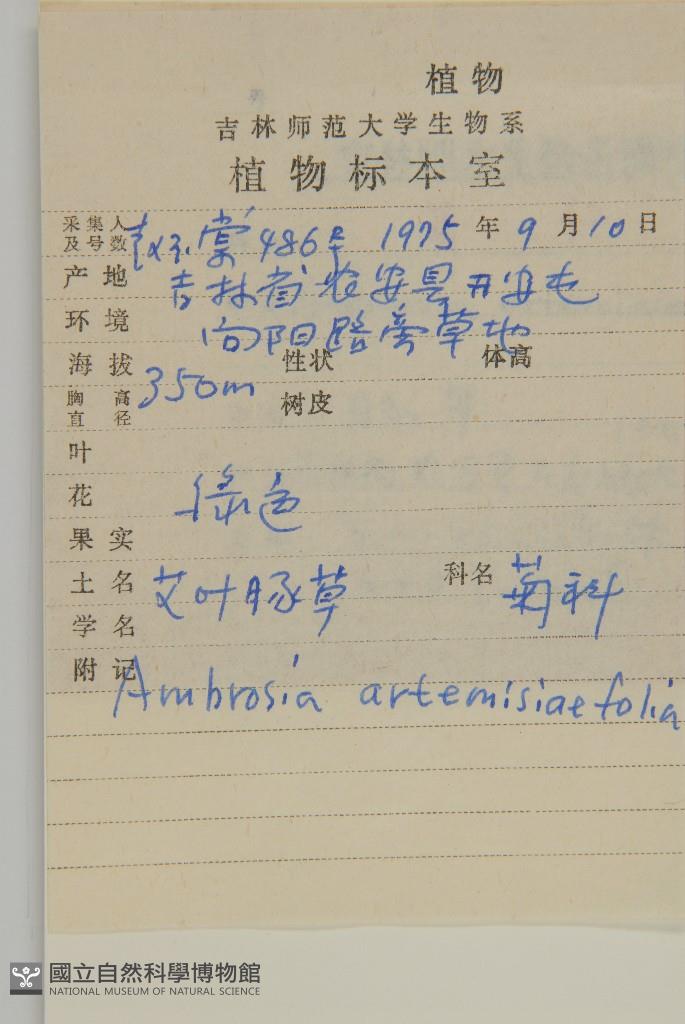 植物
吉林师范大学生物系
植物标本室
采集人及号数 棠 486号 1975年9月10日
产地 吉林省农安县开安屯
环境 向阳路旁草地
海拔 350m 性状 体高
胸高直径 树皮
叶
花 绿色
果实
土名 艾叶豚草 科名 菊科
学名
附记 Ambrosia artemisiaefolia
國立自然科學博物館
NATIONAL MUSEUM OF NATURAL SCIENCE